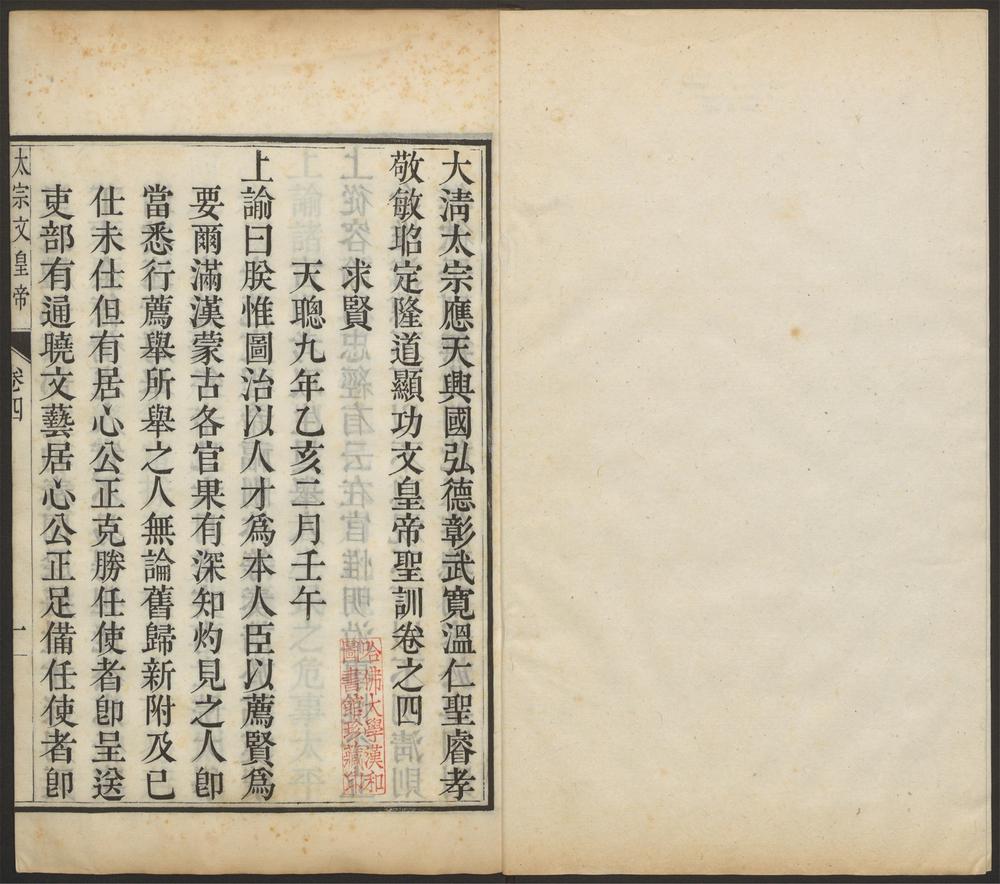 大淸太宗應天興國弘德彰武寬溫仁聖睿孝
敬敏昭定隆道顯功文皇帝聖訓卷之四
求賢
天聰九年乙亥二月壬午
上諭曰朕惟圖治以人才爲本人臣以薦賢爲
要爾滿漢蒙古各官果有深知灼見之人卽
當悉行薦舉所舉之人無論舊歸新附及已
仕未仕但有居心公正克勝任使者卽呈送
吏部有通曉文藝居心公正足備任使者卽
太宗文皇帝
卷四
一
哈佛大學漢和
圖書館珍藏印